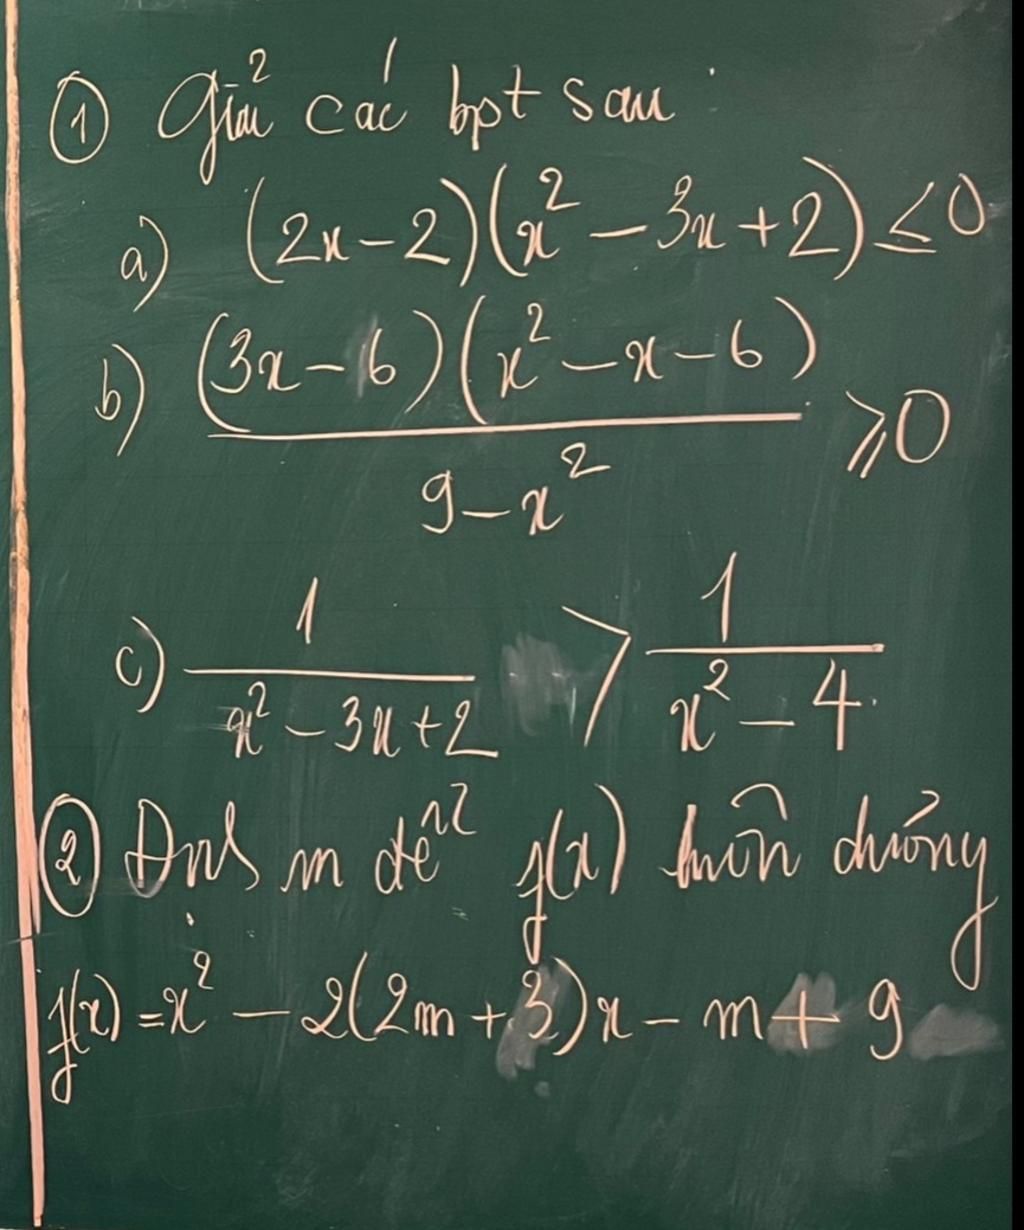 ① Giải các bpt sau:
a) (2x - 2)(x² - 3x + 2) ≤ 0
b) (3x - 6)(x² - x - 6)
⩾ 0
9 - x²
c) 1 > 1
x² - 3x + 2 x² - 4
② Định m để f(x) luôn dương
f(x) = x² - 2(2m + 3)x - m + 9